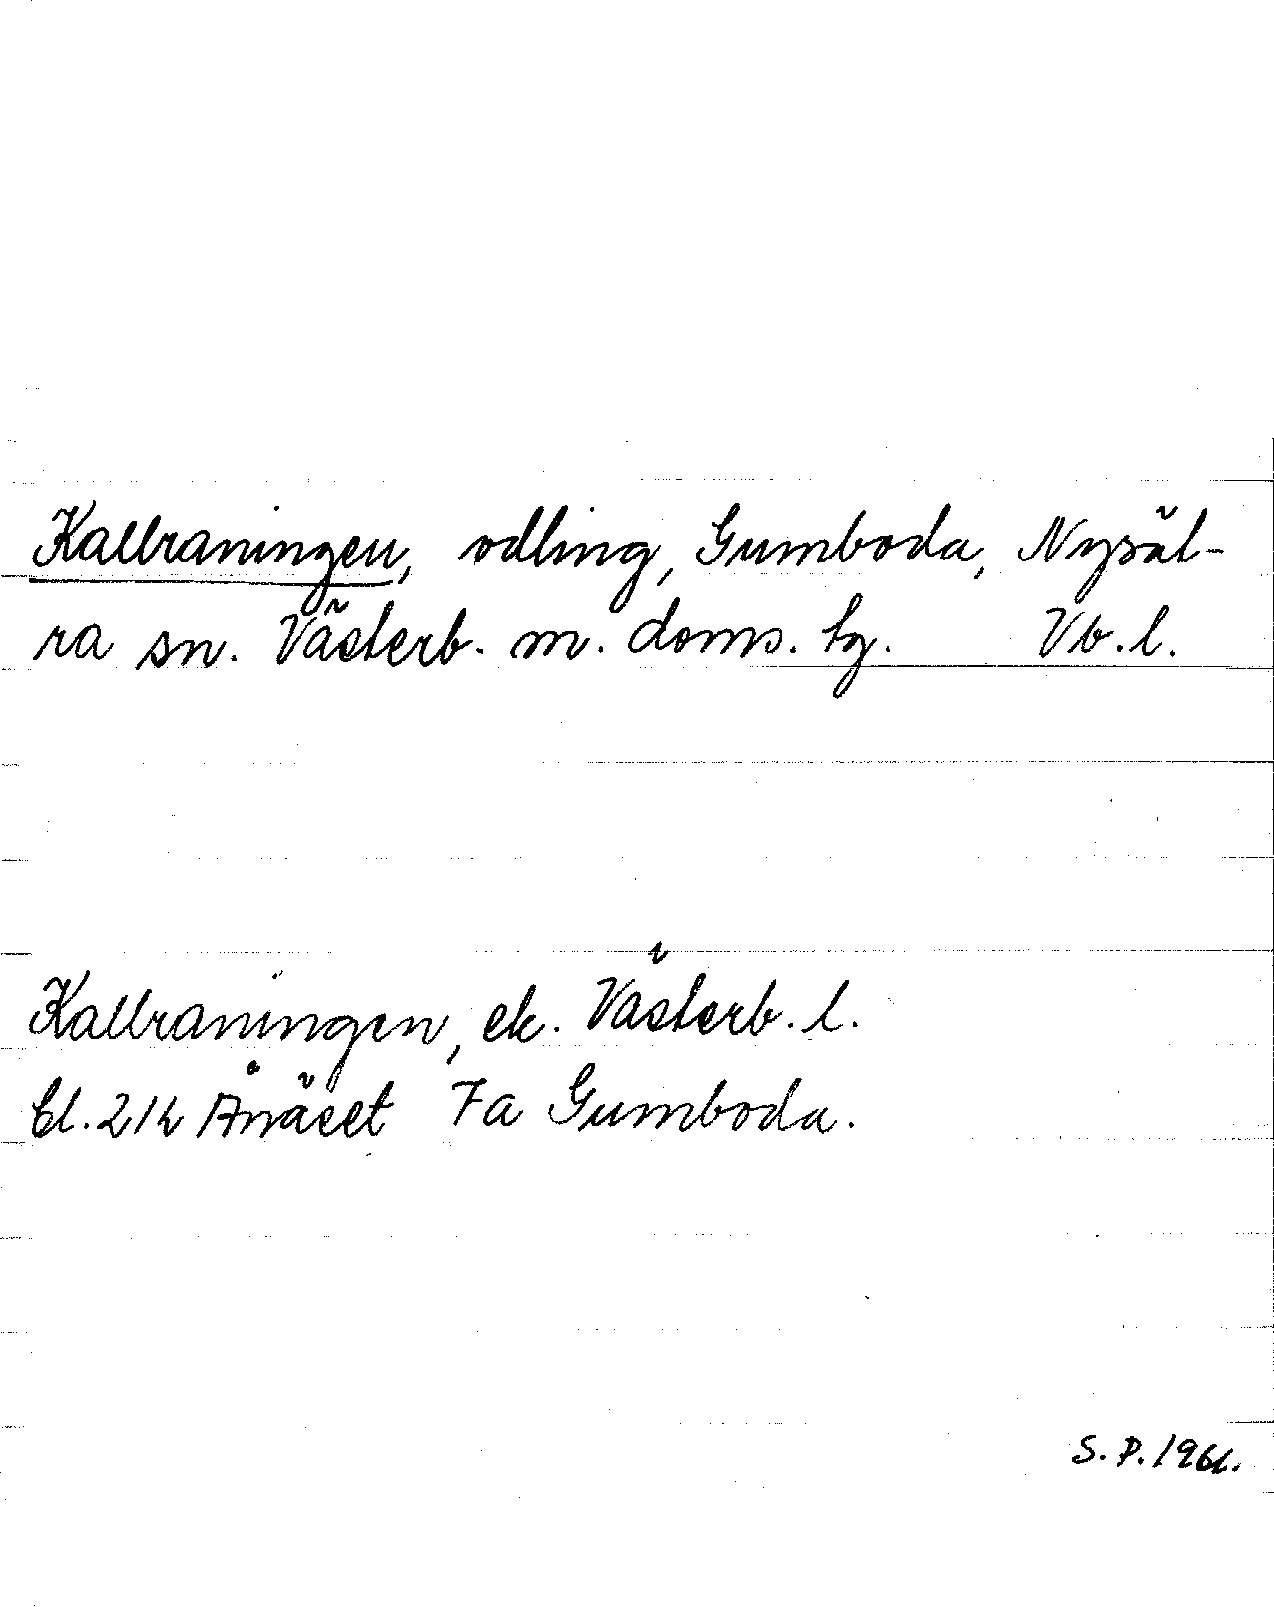 Kallraningen, odling, Gumboda, Nysät-
ra sn. Västerb. m. doms. tg. Vb. l.
Kallraningen, ek. Västerb. l.
bl. 214 Ånäset 7a Gumboda.
S. P. 1961.